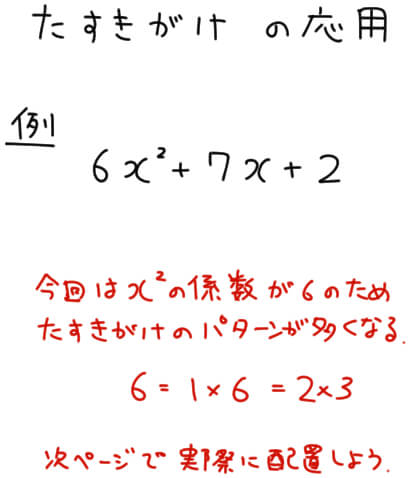 たすきがけ の応用
例
6x²+7x+2
今回はx²の係数が6のため
たすきがけのパターンが多くなる.
6=1×6=2×3
次ページで実際に配置しよう.